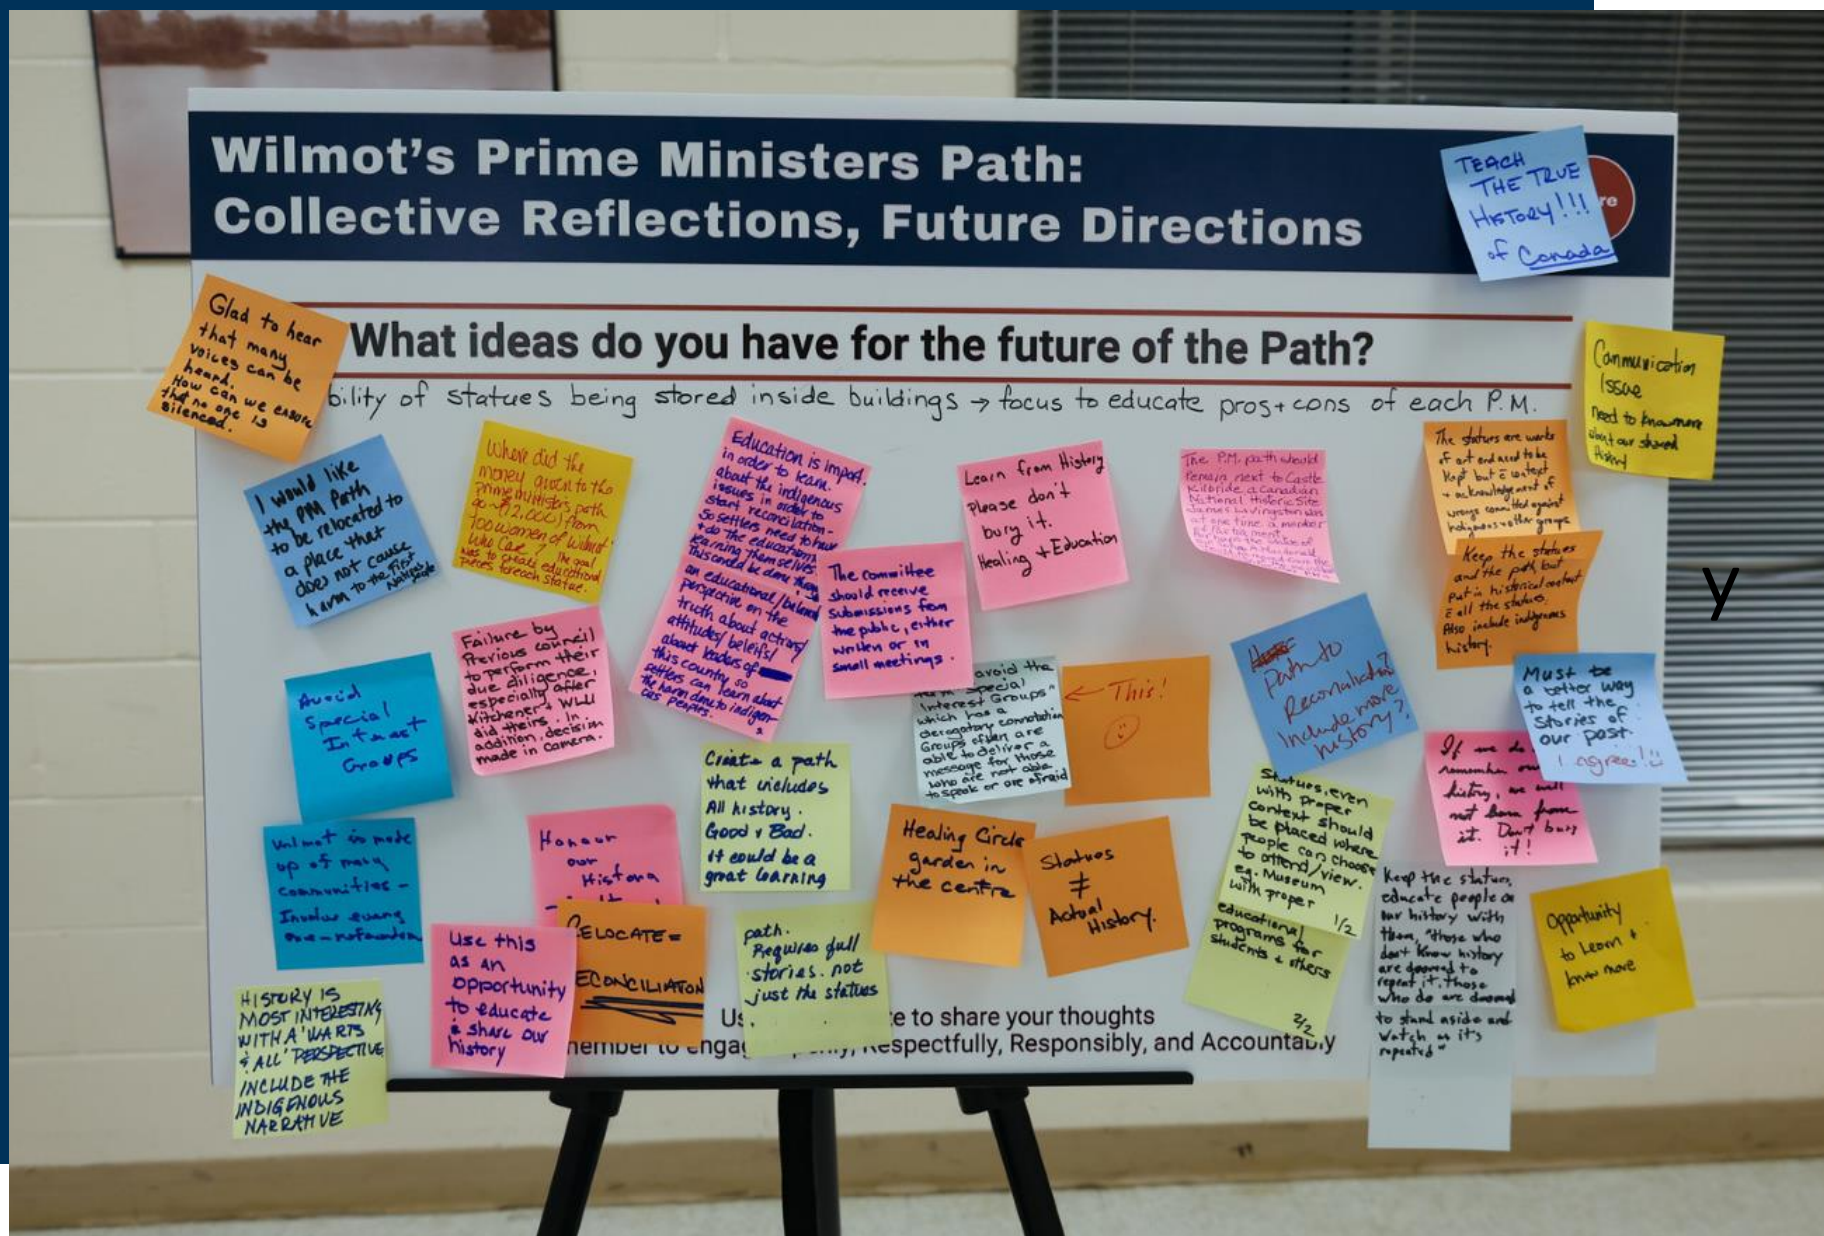 Wilmot's Prime Ministers Path:
Collective Reflections, Future Directions
TEACH
THE TRUE
HISTORY!!!
of Canada
re
What ideas do you have for the future of the Path?
bility of statues being stored inside buildings → focus to educate pros + cons of each P.M.
Glad to hear
that many
voices can be
heard.
How can we ensure
that no one is
silenced.
Communication
Issue
need to know more
about our shared
History
I would like
the PM Path
to be relocated to
a place that
does not cause
harm to the First
Nations people
Where did the
money given to the
prime ministers path
go ~$12,000) from
100 women of Wilmot
who Care? The goal
was to create educational
pieces to each statue.
Education is import.
in order to learn.
about the indigenous
issues in order to
start reconciliation -
so settlers need to have
+ do the educations
learning themselves
This could be done
an educational
perspective on the
truth about actions/
attitudes/beleifs/
about leaders of
this country so
settlers can learn about
the harm done to indigen-
ous peoples.
Learn from History
please don't
bury it.
Healing + Education
The P.M. path should
remain next to Castle
Kilbride a Canadian
National Historic Site
James Livingston was
at one time a member
of Parliament
The statues are works
of art and need to be
kept but c̄ context
+ acknowledgement of
wrongs committed against
Indigenous + other groups
Keep the statues
and the path but
put in historical context
c̄ all the statues.
Also include indigenous
history.
The committee
should receive
submissions from
the public, either
written or in
small meetings.
Failure by
Previous council
to perform their
due diligence,
especially after
Kitchener + WLU
did theirs. In
addition, decision
made in camera.
Avoid
Special
Interest
Groups
avoid the
term "Special
Interest Groups"
which has a
derogatory connotation
Groups often are
able to deliver a
message for those
who are not able
to speak or are afraid
← This!
Path to
Reconciliation?
Include more
history?
Must be
a better way
to tell the
stories of
our past.
I agree!
If we do
remember our
history, we will
not learn from
it. Don't bury
it!
Create a path
that includes
All history.
Good + Bad.
it could be a
great learning
Statues, even
with proper
context should
be placed where
people can choose
to attend/view.
eg. Museum
with proper
1/2
educational
programs for
students + others
2/2
Wilmot is made
up of many
communities -
Involve every
one -
Honour
our
Healing Circle
garden in
the centre
Statues
≠
Actual
History.
Keep the statues,
educate people on
our history with
them, "those who
don't know history
are doomed to
repeat it. those
who do are doomed
to stand aside and
watch as it's
repeated"
Opportunity
to Learn +
know more
Use this
as an
opportunity
to educate
& share our
history
RELOCATE =
ECONCILIATION
path.
Requires full
stories. not
just the statues
HISTORY IS
MOST INTERESTING
WITH A 'WARTS
& ALL' PERSPECTIVE
INCLUDE THE
INDIGENOUS
NARRATIVE
Us e to share your thoughts
member to engag Respectfully, Responsibly, and Accountably
y